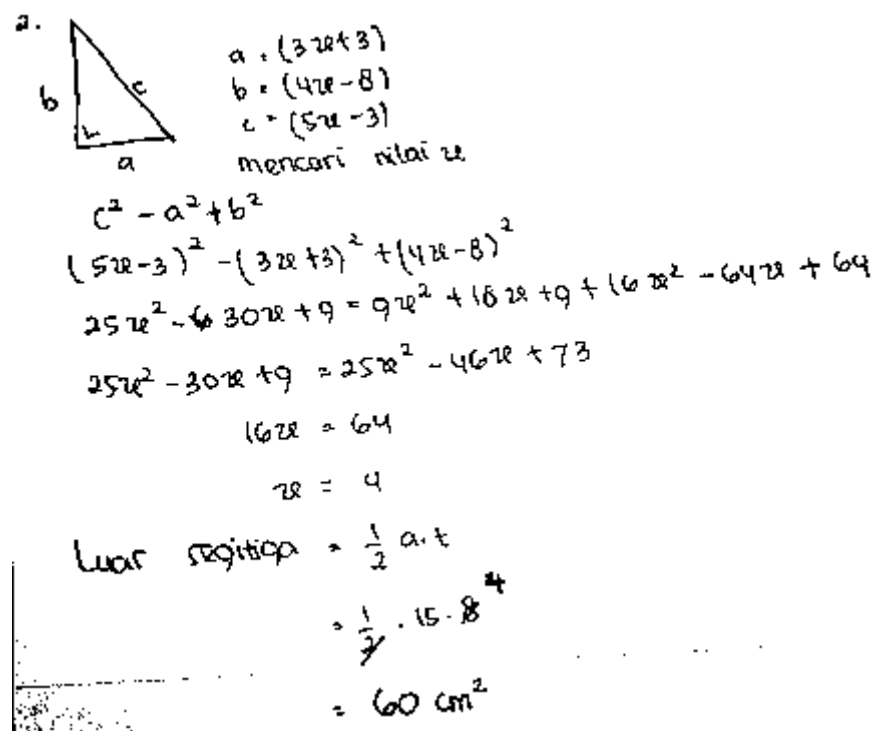 2.
b c a
a = (3x+3)
b = (4x-8)
c = (5x-3)
mencari nilai x
c² = a² + b²
(5x-3)² = (3x+3)² + (4x-8)²
25x² - 30x + 9 = 9x² + 18x + 9 + 16x² - 64x + 64
25x² - 30x + 9 = 25x² - 46x + 73
16x = 64
x = 4
Luas segitiga = 1/2 a.t
= 1/2 . 15 . 8 4
= 60 cm²